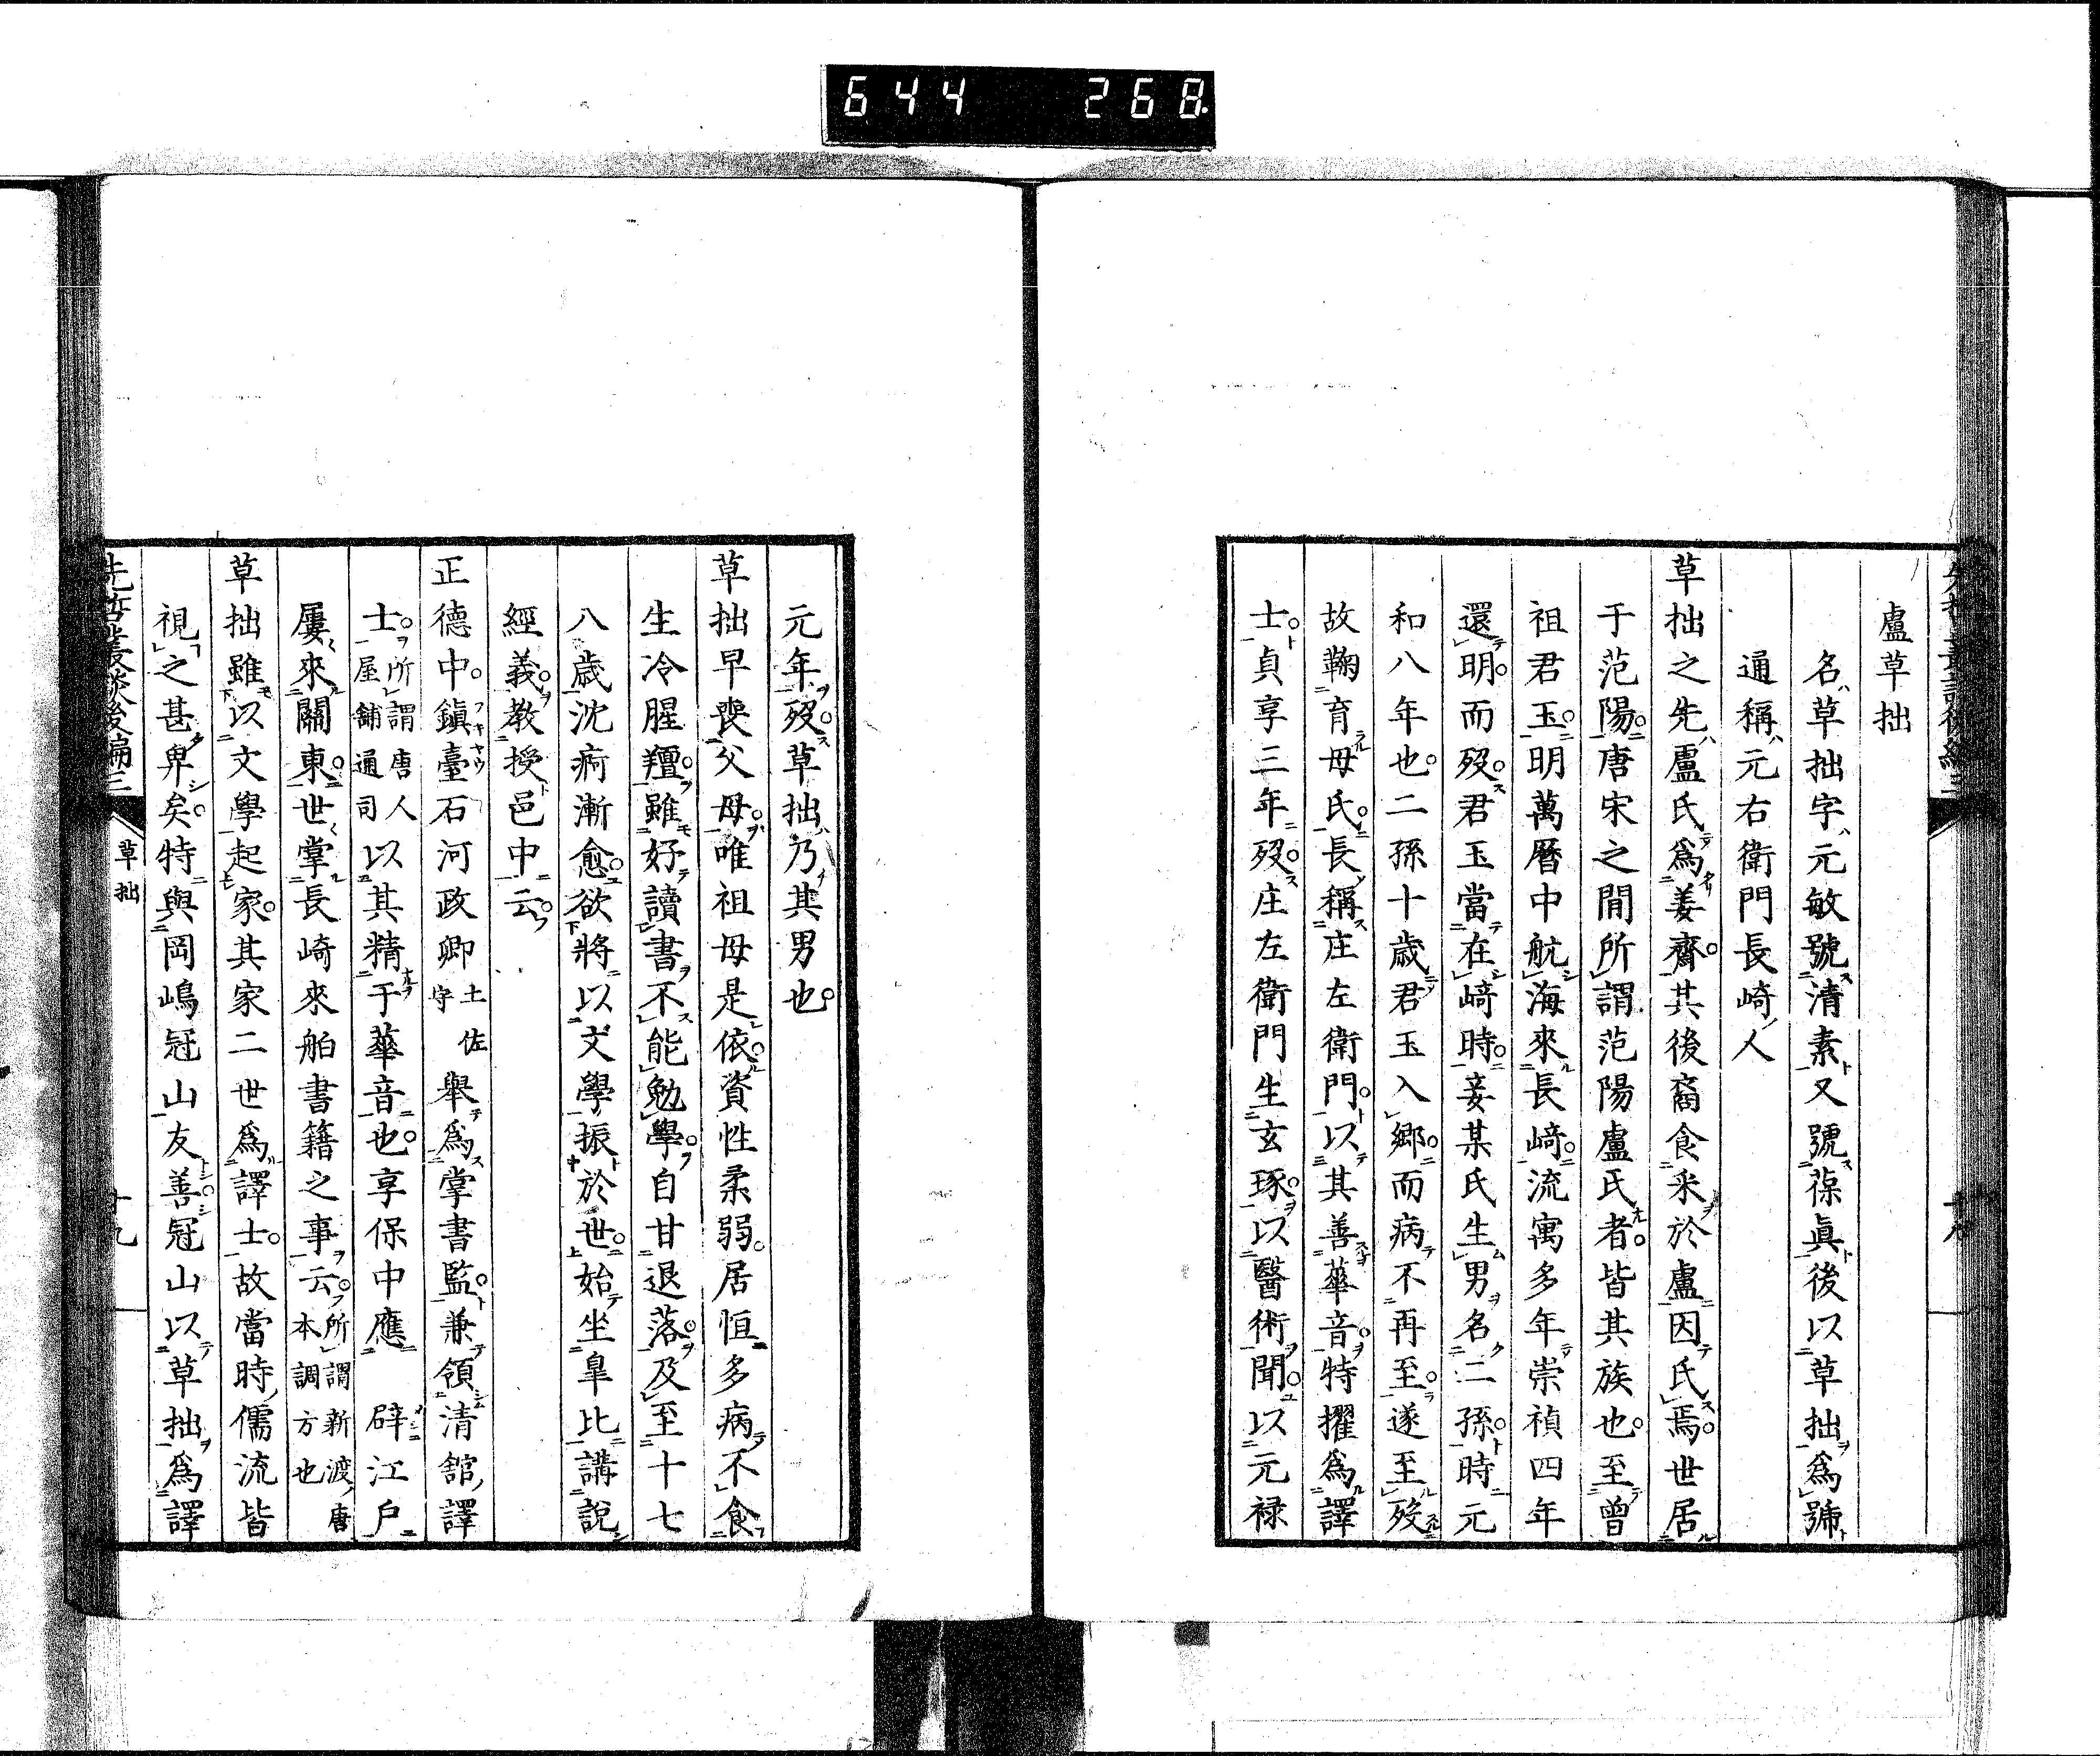 644 268
盧草拙
名草拙字元敏號清素又號葆眞後以草拙爲號
通稱元右衛門長崎人
草拙之先盧氏爲姜齊其後裔食采於盧因氏焉世居
于范陽唐宋之間所謂范陽盧氏者皆其族也至曾
祖君玉明萬曆中航海來長崎流寓多年崇禎四年
還明而歿君玉當在崎時妾某氏生男名二孫時元
和八年也二孫十歲君玉入鄉而病不再至遂至歿
故鞠育母氏長稱庄左衛門以其善華音特擢爲譯
士貞享三年歿庄左衛門生玄琢以醫術聞以元禄
元年歿草拙乃其男也
草拙早喪父母唯祖母是依資性柔弱居恒多病不食
生冷腥羶雖好讀書不能勉學自甘退落及至十七
八歲沈痾漸愈欲將以文學振於世始坐皐比講說
經義教授邑中云
正德中鎭臺石河政郷土佐守舉爲掌書監兼領清舘譯
士所謂唐人屋舖通司以其精于華音也享保中應 辟江戶
屢來關東世掌長崎來舶書籍之事云所謂新渡唐本調方也
草拙雖以文學起家其家二世爲譯士故當時儒流皆
視之甚卑矣特與岡嶋冠山友善冠山以草拙爲譯
先哲叢談後編三 草拙 十九